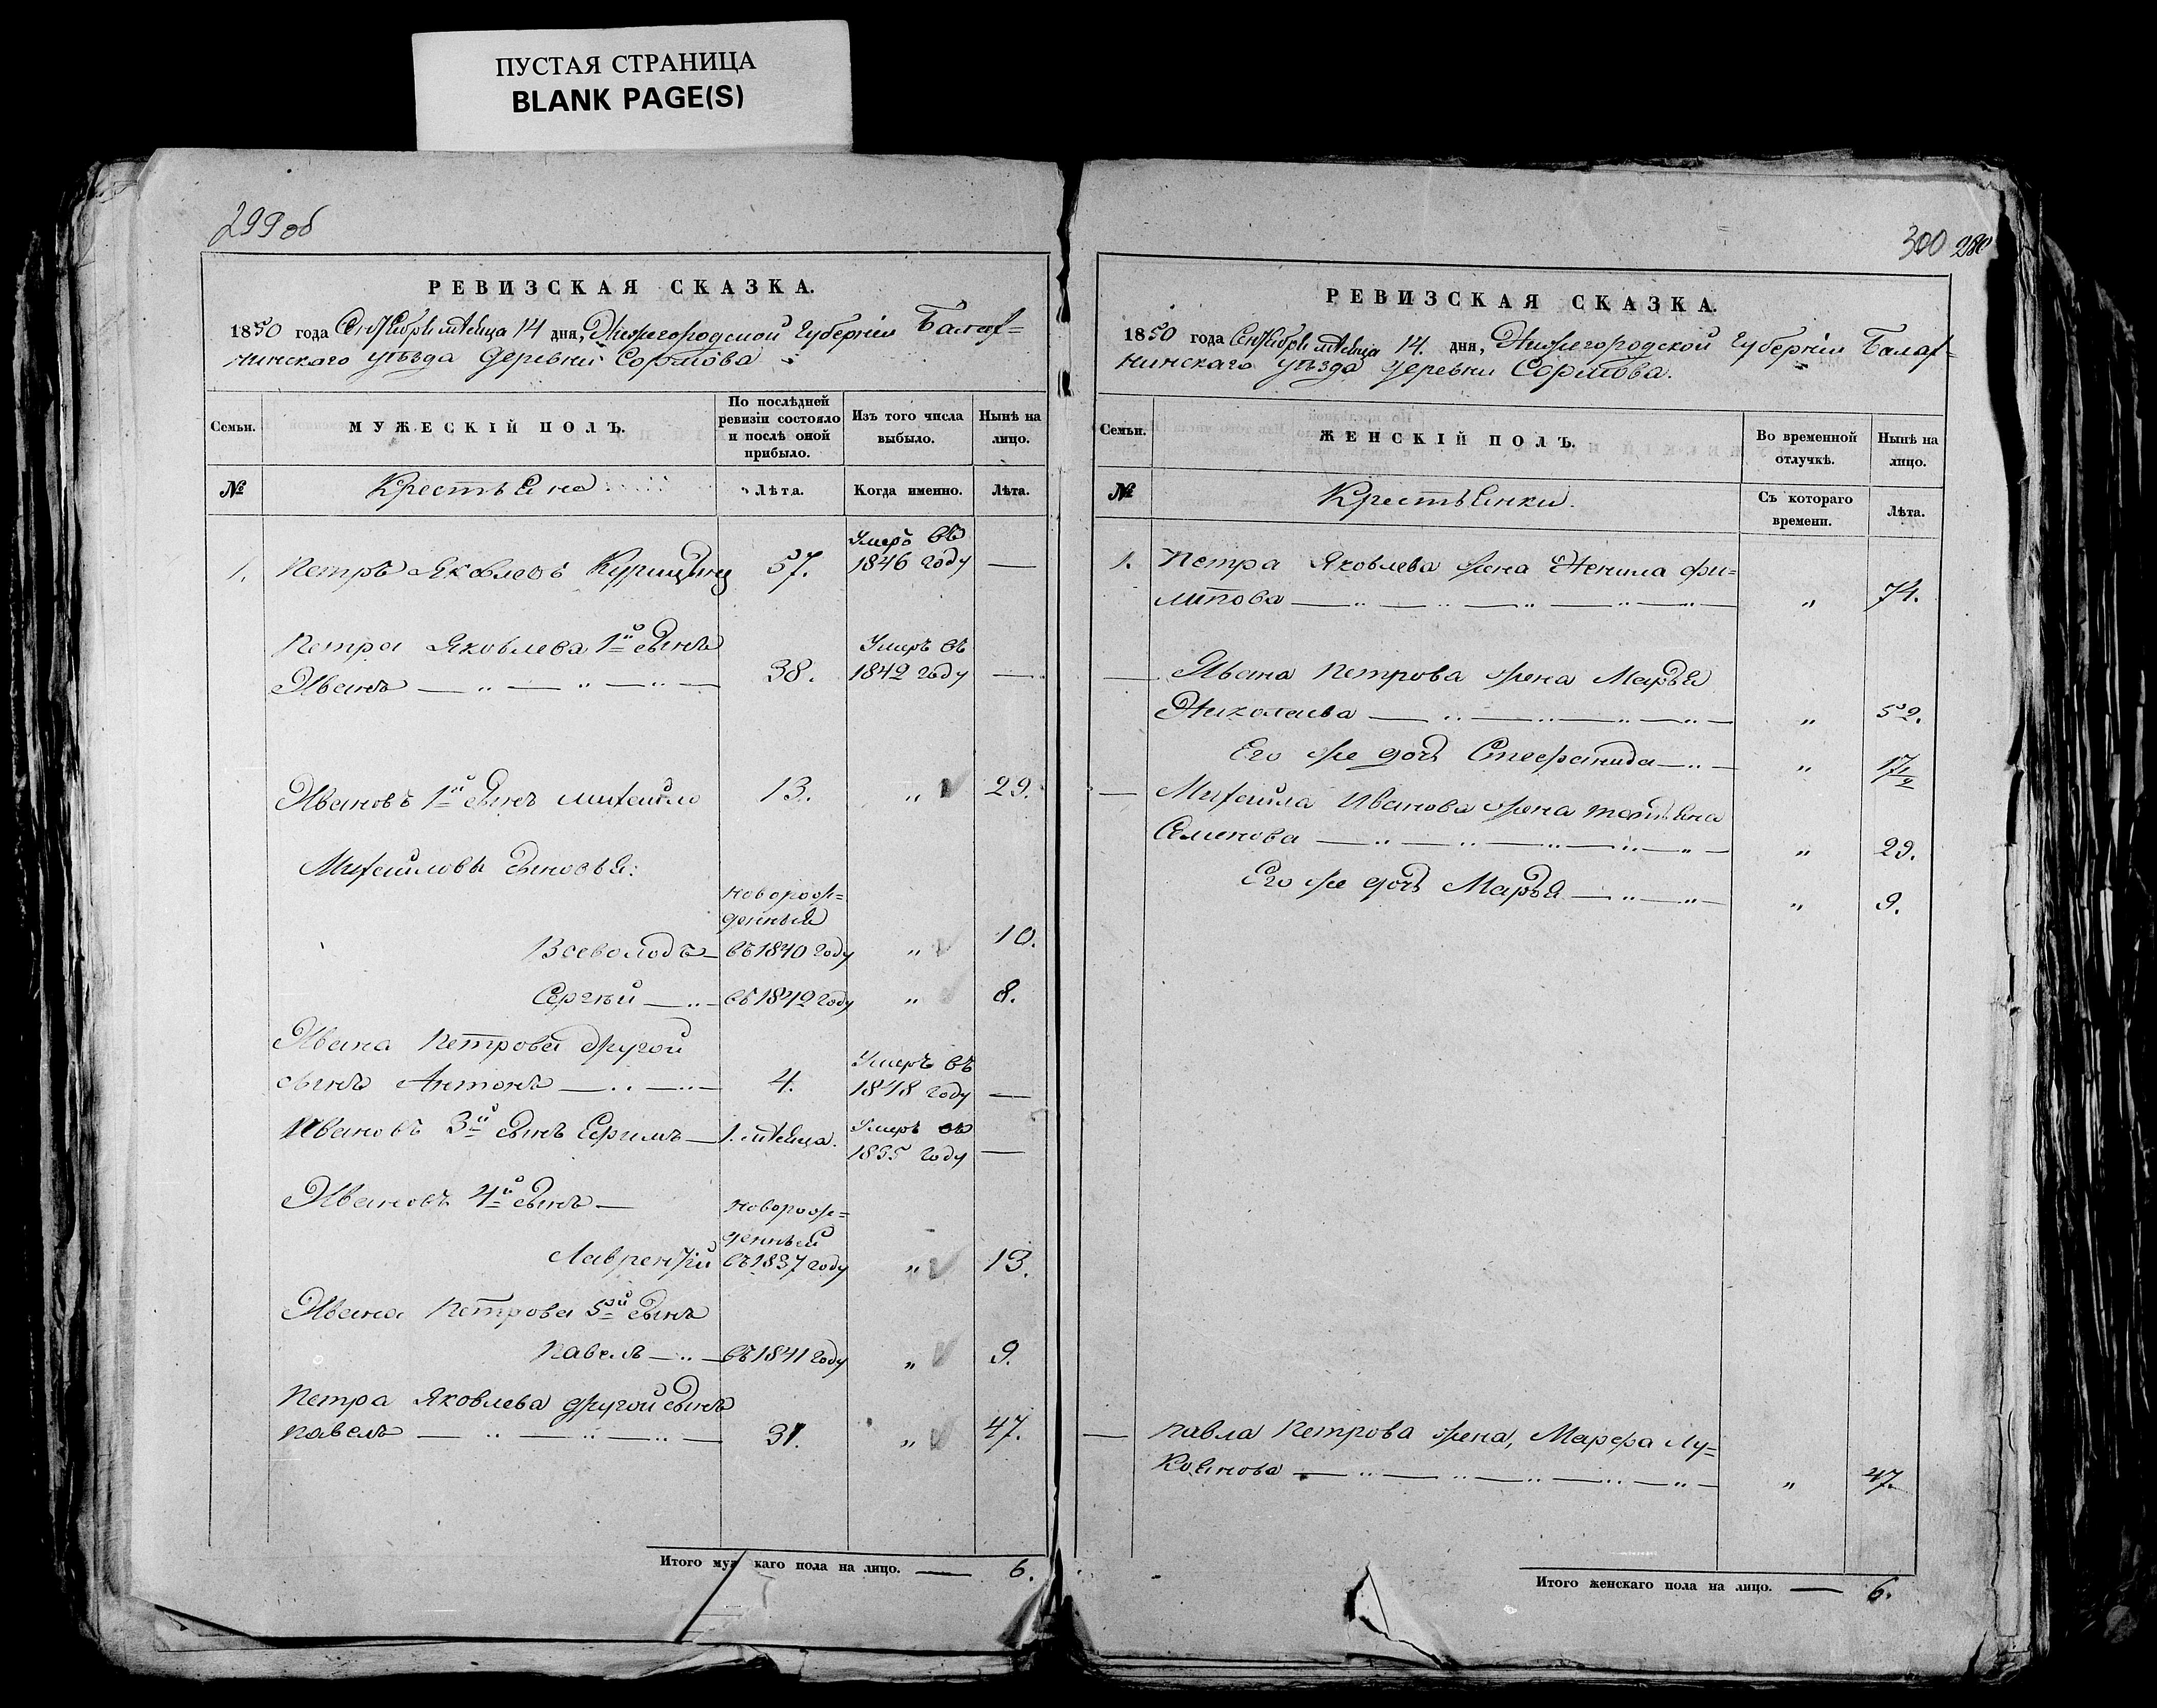 ПУСТАЯ СТРАНИЦА
BLANK PAGE(S)
299 об
РЕВИЗСКАЯ СКАЗКА.
1850 года Сентября мѣсяца 14 дня, Нижегородской Губерніи Балах=
нинскаго уѣзда деревни Сормова
Семьи.
МУЖЕСКІЙ ПОЛЪ.
По послѣдней ревизіи состояло и послѣ оной прибыло.
Изъ того числа выбыло.
Нынѣ на лицо.
№
Крестьяне
Лѣта.
Когда именно.
Лѣта.
1. Петръ Яковлевъ Курицынъ 57. Умеръ въ 1846 году —
Петра Яковлева 1й сынъ
Иванъ 38. Умеръ въ 1842 году —
Ивановъ 1й сынъ Михайло 13. „ 29.
Михайловы сыновья:
новорож=
денный
Всеволодъ въ 1840 году „ 10.
Сергѣй въ 1842 году „ 8.
Ивана Петрова другой
сынъ Антонъ 4. Умеръ въ 1848 году —
Ивановъ 3й сынъ Ефимъ 1. мѣсяца. Умеръ въ 1835 году —
Ивановъ 4й сынъ
новорож=
денный
Лаврентій въ 1837 году „ 13.
Ивана Петрова 5й сынъ
Павелъ въ 1841 году „ 9.
Петра Яковлева другой сынъ
Павелъ 31. „ 47.
Итого муж каго пола на лицо. — 6.
300
РЕВИЗСКАЯ СКАЗКА.
1850 года Сентября мѣсяца 14. дня, Нижегородской Губерніи Балах=
нинскаго уѣзда деревни Сормова.
Семьи.
ЖЕНСКІЙ ПОЛЪ.
Во временной отлучкѣ.
Нынѣ на лицо.
№
Крестьянки.
Съ котораго времени.
Лѣта.
1. Петра Яковлева жена Ненила Фи=
липова „ 74.
— Ивана Петрова жена Марья
Николаева „ 52.
Его же дочь Стефанида „ 17 1/2
— Михайла Иванова жена Татьяна
Семенова „ 29.
Его же дочь Марья „ 9.
— Павла Петрова жена, Марфа Лу=
коянова „ 47.
Итого женскаго пола на лицо. — 6.